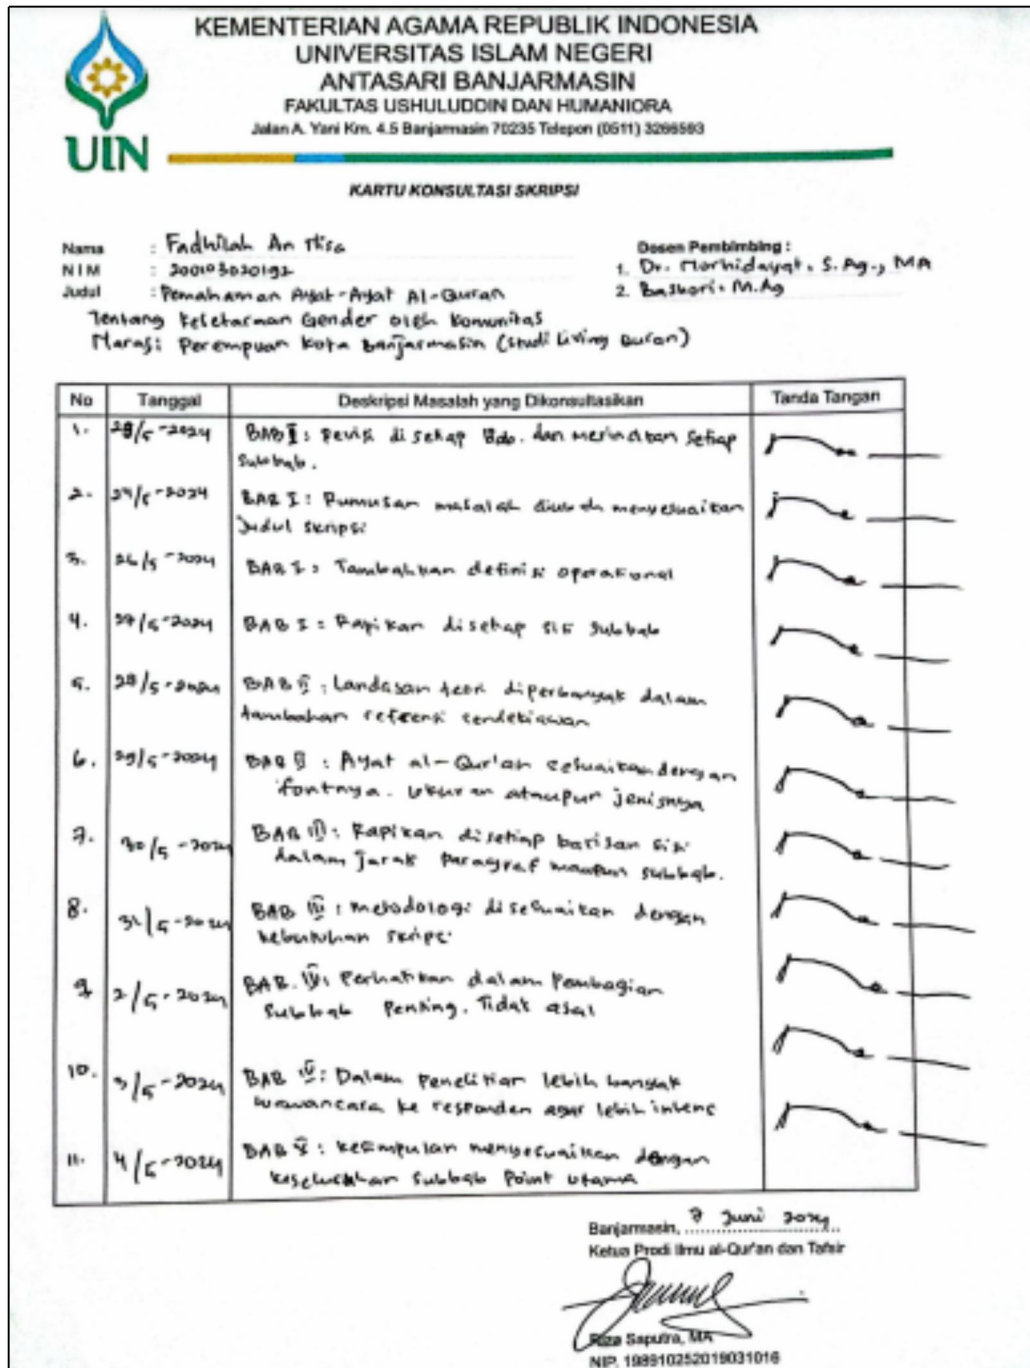 KEMENTERIAN AGAMA REPUBLIK INDONESIA
UNIVERSITAS ISLAM NEGERI
ANTASARI BANJARMASIN
FAKULTAS USHULUDDIN DAN HUMANIORA
Jalan A. Yani Km. 4.5 Banjarmasin 70235 Telepon (0511) 3266593
UIN
KARTU KONSULTASI SKRIPSI
Nama : Fadhilah An Nisa
NIM : 200103020192
Judul : Pemahaman Ayat-Ayat Al-Quran
Tentang Kesetaraan Gender oleh Komunitas
Narasi Perempuan Kota Banjarmasin (Studi Living Quran)
Dosen Pembimbing :
1. Dr. Norhidayat, S.Ag., MA
2. Baskori, M.Ag
No Tanggal Deskripsi Masalah yang Dikonsultasikan Tanda Tangan
1. /5-2024 BAB I : Revisi di setiap Bab. dan merincikan setiap
Subbab.
2. 24/5-2024 BAB I : Rumusan masalah diubah menyesuaikan
Judul skripsi
3. 26/5-2024 BAB I : Tambahkan definisi operasional
4. 27/5-2024 BAB I : Rapikan disetiap sisi subbab
5. 28/5-2024 BAB II : Landasan teori diperbanyak dalam
tambahan referensi cendekiawan
6. 29/5-2024 BAB II : Ayat al-Qur'an sesuaikan dengan
fontnya. ukuran ataupun jenisnya
7. 30/5-2024 BAB III : Rapikan disetiap barisan sisi
dalam jarak Paragraf maupun subbab.
8. 31/5-2024 BAB III : metodologi disesuaikan dengan
kebutuhan skripsi
9 2/5-2024 BAB. IV : Perhatikan dalam Pembagian
Subbab Penting. Tidak asal
10. 3/5-2024 BAB IV : Dalam penelitian lebih banyak
wawancara ke responden agar lebih intens
11. 4/5-2024 BAB V : Kesimpulan menyesuaikan dengan
keseluruhan Subbab Point utama
Banjarmasin, 7 Juni 2024
Ketua Prodi Ilmu al-Qur'an dan Tafsir
Riza Saputra, MA
NIP. 198910252019031016